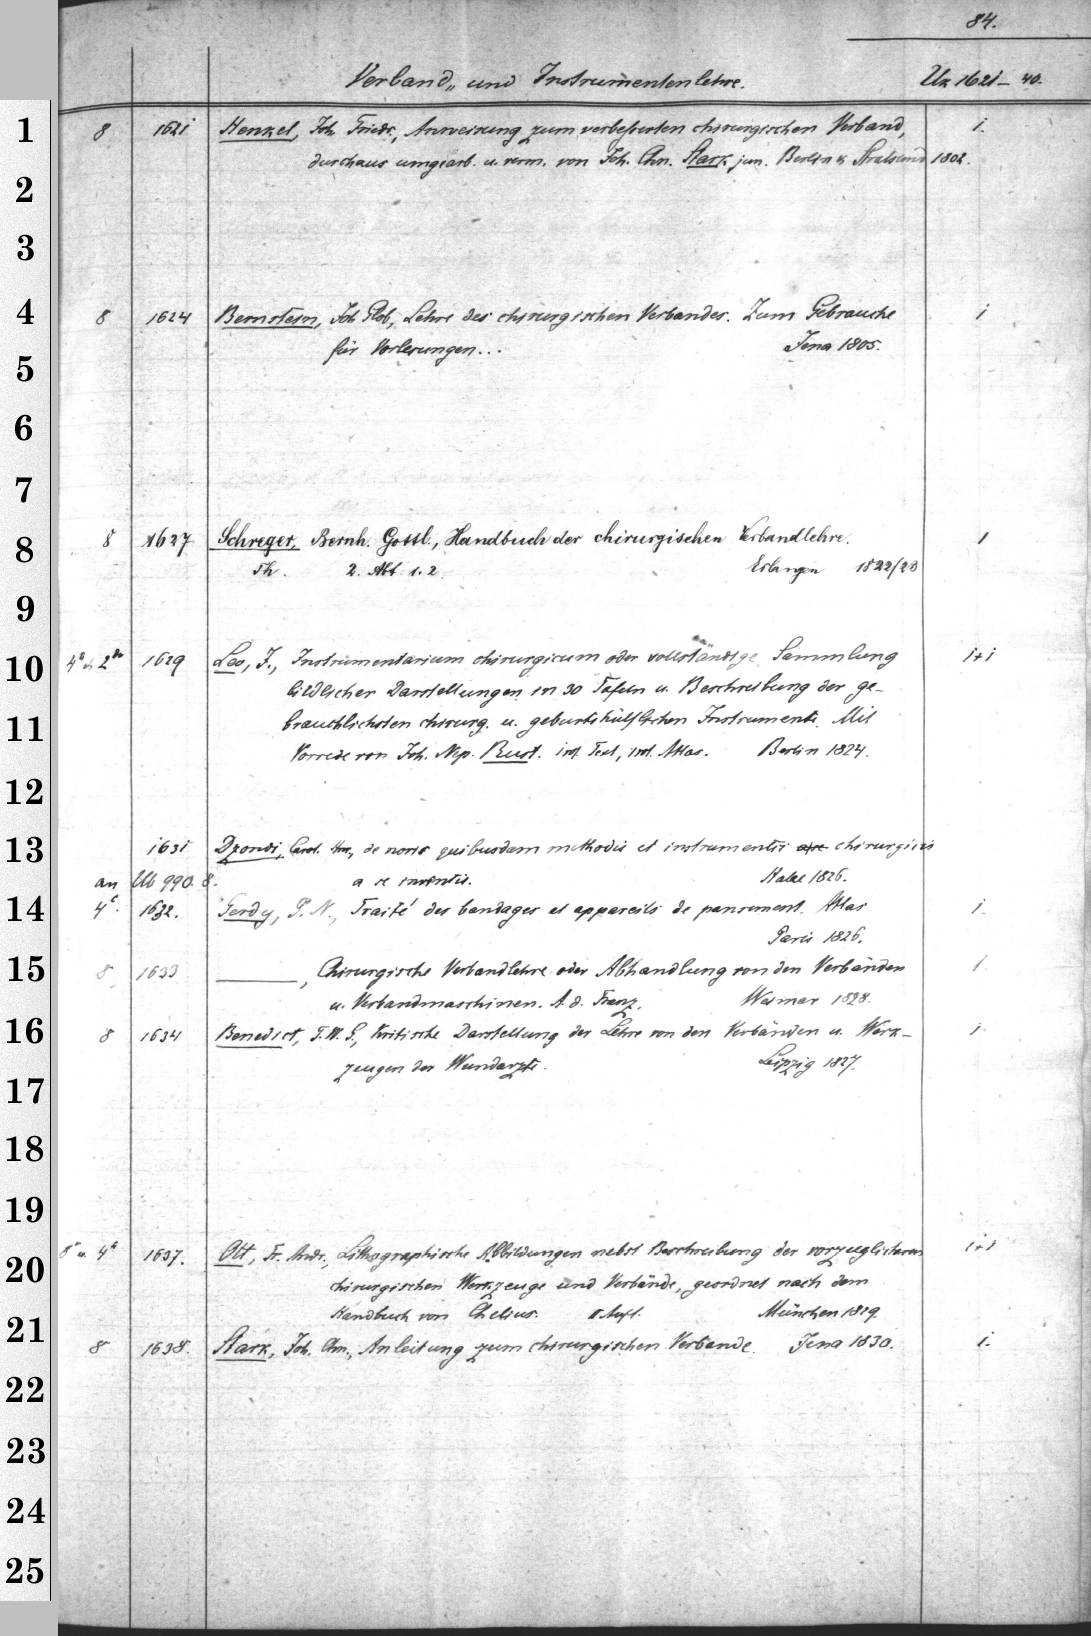 84.
Verband- und Instrumentenlehre. Uk 1621-40.
1
8 1621 Henkel, Joh. Friedr., Anweisung zum verbesserten chirurgischen Verband, 1.
durchaus umgearb. u. verm. von Joh. Chn. Stark jun. Berlin & Stralsund 1802.
2
3
4
8 1624 Bernstein, Joh. Glob, Lehre des chirurgischen Verbandes. Zum Gebrauche 1
für Vorlesungen... Jena 1805.
5
6
7
8
8 1627 Schreger, Bernh. Gottl., Handbuch der chirurgischen Verbandlehre. 1
Th. 2. Abt. 1. 2. Erlangen 1822/23
9
10
4° & 2° 1629 Leo, J., Instrumentarium chirurgicum oder vollständige Sammlung 1+1
bildlicher Darstellungen in 30 Tafeln u. Beschreibung der ge-
11
bräuchlichsten chirurg. u. geburtshülflichen Instrumente. Mit
Vorrede von Joh. Nep. Rust. int. Text, int. Atlas. Berlin 1824.
12
13
1631 Dzondi, Carol. Hm., de novis quibusdam methodis et instrumentis chirurgicis
an Ub 990. 8. a se inventis. Halae 1826.
14
4° 1632. Gerdy, P. N., Traité des bandages et appareils de pansement. Atlas 1.
Paris 1826.
15
8 1633 ———, Chirurgische Verbandlehre oder Abhandlung von den Verbänden 1
u. Verbandmaschinen. A. d. Franz. Weimar 1828.
16
8 1634 Benedict, T. W. G., Kritische Darstellung der Lehre von den Verbänden u. Werk- 1
zeugen der Wundärzte. Leipzig 1827.
17
18
19
20
8° u. 4° 1637. Ott, Fr. Andr., Lithographische Abbildungen nebst Beschreibung der vorzüglicheren 1+1
chirurgischen Werkzeuge und Verbände, geordnet nach dem
21
Handbuch von Chelius. Aufl. München 1829.
8 1638. Stark, Joh. Chn., Anleitung zum chirurgischen Verbande. Jena 1830. 1.
22
23
24
25